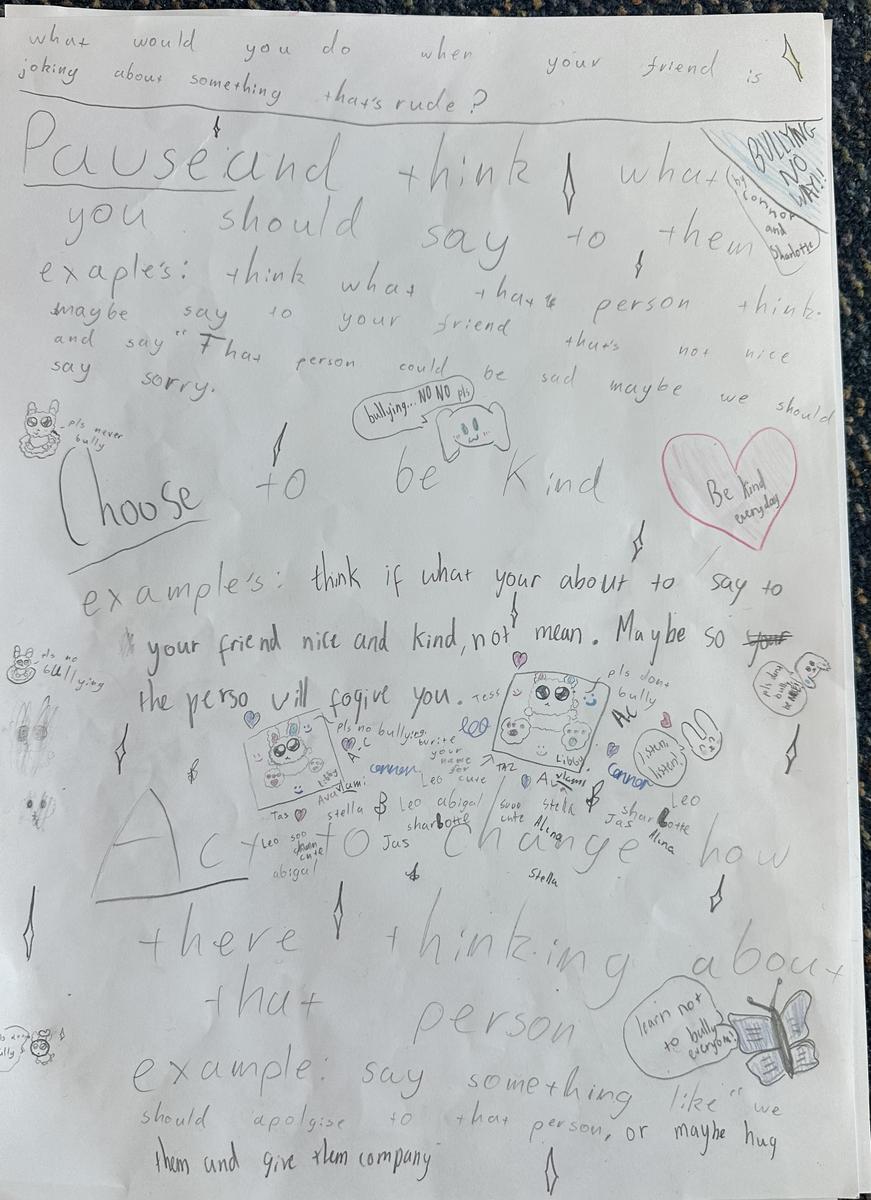 what would you do when your friend is
joking about something that's rude?
BULLYING
NO
WAY!!
by
connor
and
Sharlotte
Pause and think what
you should say to them
exaple's: think what that person think.
maybe say to your friend that's not nice
and say "That person could be sad maybe we should
say sorry.
bullying... NO NO pls
pls never
bully
Choose to be Kind
Be kind
everyday
example's: think if what your about to say to
your friend nice and kind, not mean. Maybe so your
the perso will fogive you.
pls no
bullying
Tess
pls dont
bully
A.C
pls no bullying.
A.C
Leo
your
name
for
connor
Leo cute
Libby
TAZ
Libby
listen,
listen!
Connor
Ava
vlami
Ava
vlami
Tas
stella
Leo abigal
sharlotte
sooo
cute
stella
Alina
Jas
sharlotte
Leo
Alina
Leo soo
cute
abigal
Jas
Stella
Act to change how
there thinking about
that person
learn not
to bully
everyone!
example: say something like "we
should apolgise to that person, or maybe hug
them and give them company